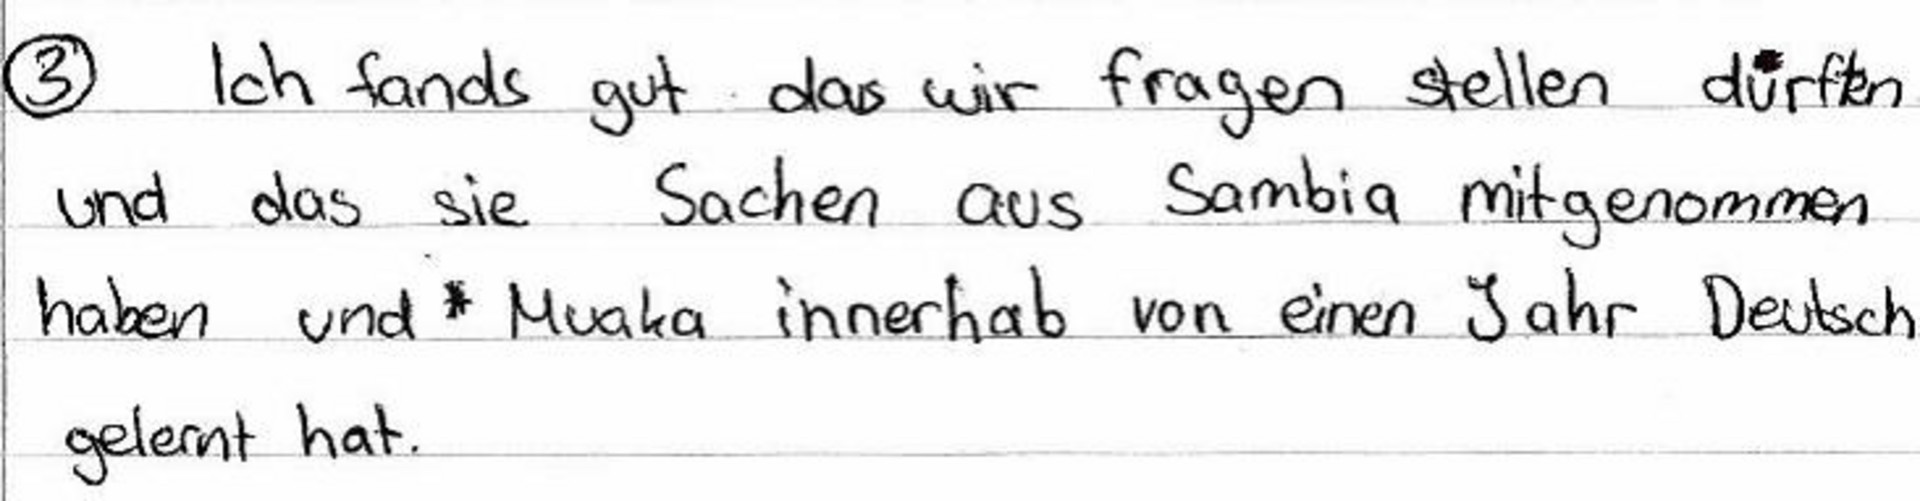 ③ Ich fands gut das wir fragen stellen dürften
und das sie Sachen aus Sambia mitgenommen
haben und * Muaka innerhab von einen Jahr Deutsch
gelernt hat.